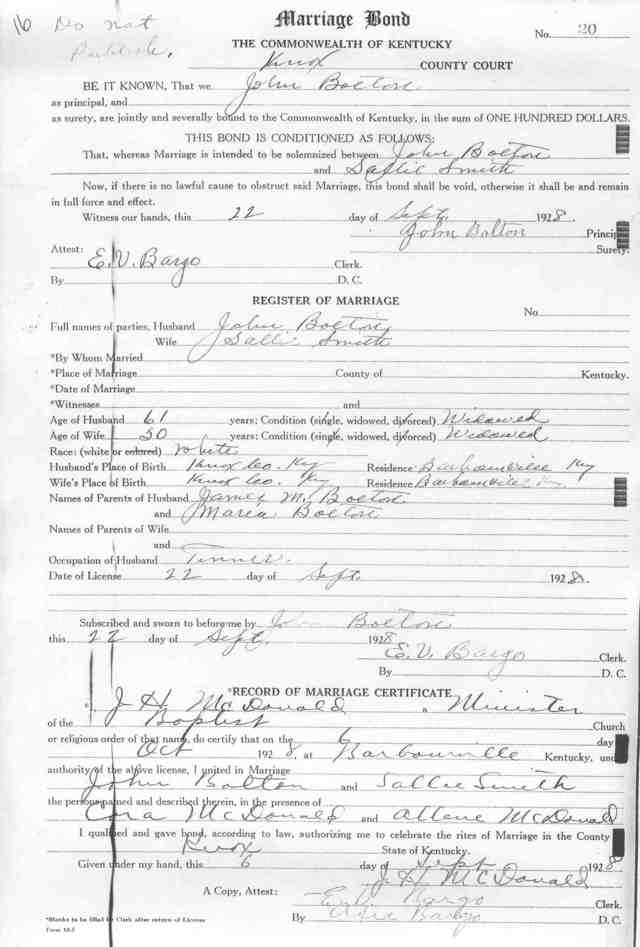 16 Do not Publish. Marriage Bond No. 20
THE COMMONWEALTH OF KENTUCKY
Knox COUNTY COURT
BE IT KNOWN, That we John Bolton
as principal, and
as surety, are jointly and severally bound to the Commonwealth of Kentucky, in the sum of ONE HUNDRED DOLLARS.
THIS BOND IS CONDITIONED AS FOLLOWS:
That, whereas Marriage is intended to be solemnized between John Bolton
and Sallie Smith
Now, if there is no lawful cause to obstruct said Marriage, this bond shall be void, otherwise it shall be and remain
in full force and effect.
Witness our hands, this 22 day of Sept. 1928.
John Bolton Princip
Surety.
Attest:
E.V. Bargo Clerk.
By D. C.
REGISTER OF MARRIAGE
No.
Full names of parties, Husband John Bolton
Wife Sallie Smith
*By Whom Married
*Place of Marriage County of Kentucky.
*Date of Marriage
*Witnesses and
Age of Husband 61 years; Condition (single, widowed, divorced) Widowed
Age of Wife 50 years; Condition (single, widowed, divorced) Widowed
Race: (white or colored) white
Husband's Place of Birth Knox Co. Ky Residence Barbourville Ky
Wife's Place of Birth Knox Co. Ky Residence Barbourville Ky.
Names of Parents of Husband James M. Bolton
and Maria Bolton
Names of Parents of Wife
and
Occupation of Husband
Date of License 22 day of Sept. 1928.
Subscribed and sworn to before me by John Bolton
this 22 day of Sept. 1928
E.V. Bargo Clerk.
By D. C.
*RECORD OF MARRIAGE CERTIFICATE
I, J H McDonald a Minister
of the Baptist Church
or religious order of that name, do certify that on the 6 day
Oct 1928, at Barbourville Kentucky, und
authority of the above license, I united in Marriage
John Bolton and Sallie Smith
the persons named and described therein, in the presence of
Cora McDonald and Allene McDonald
I qualified and gave bond, according to law, authorizing me to celebrate the rites of Marriage in the County
Knox State of Kentucky.
Given under my hand, this 6 day of Sept 1928
J H McDonald
A Copy, Attest: Bargo Clerk.
By Bargo D. C.
*Blanks to be filled by Clerk after return of License